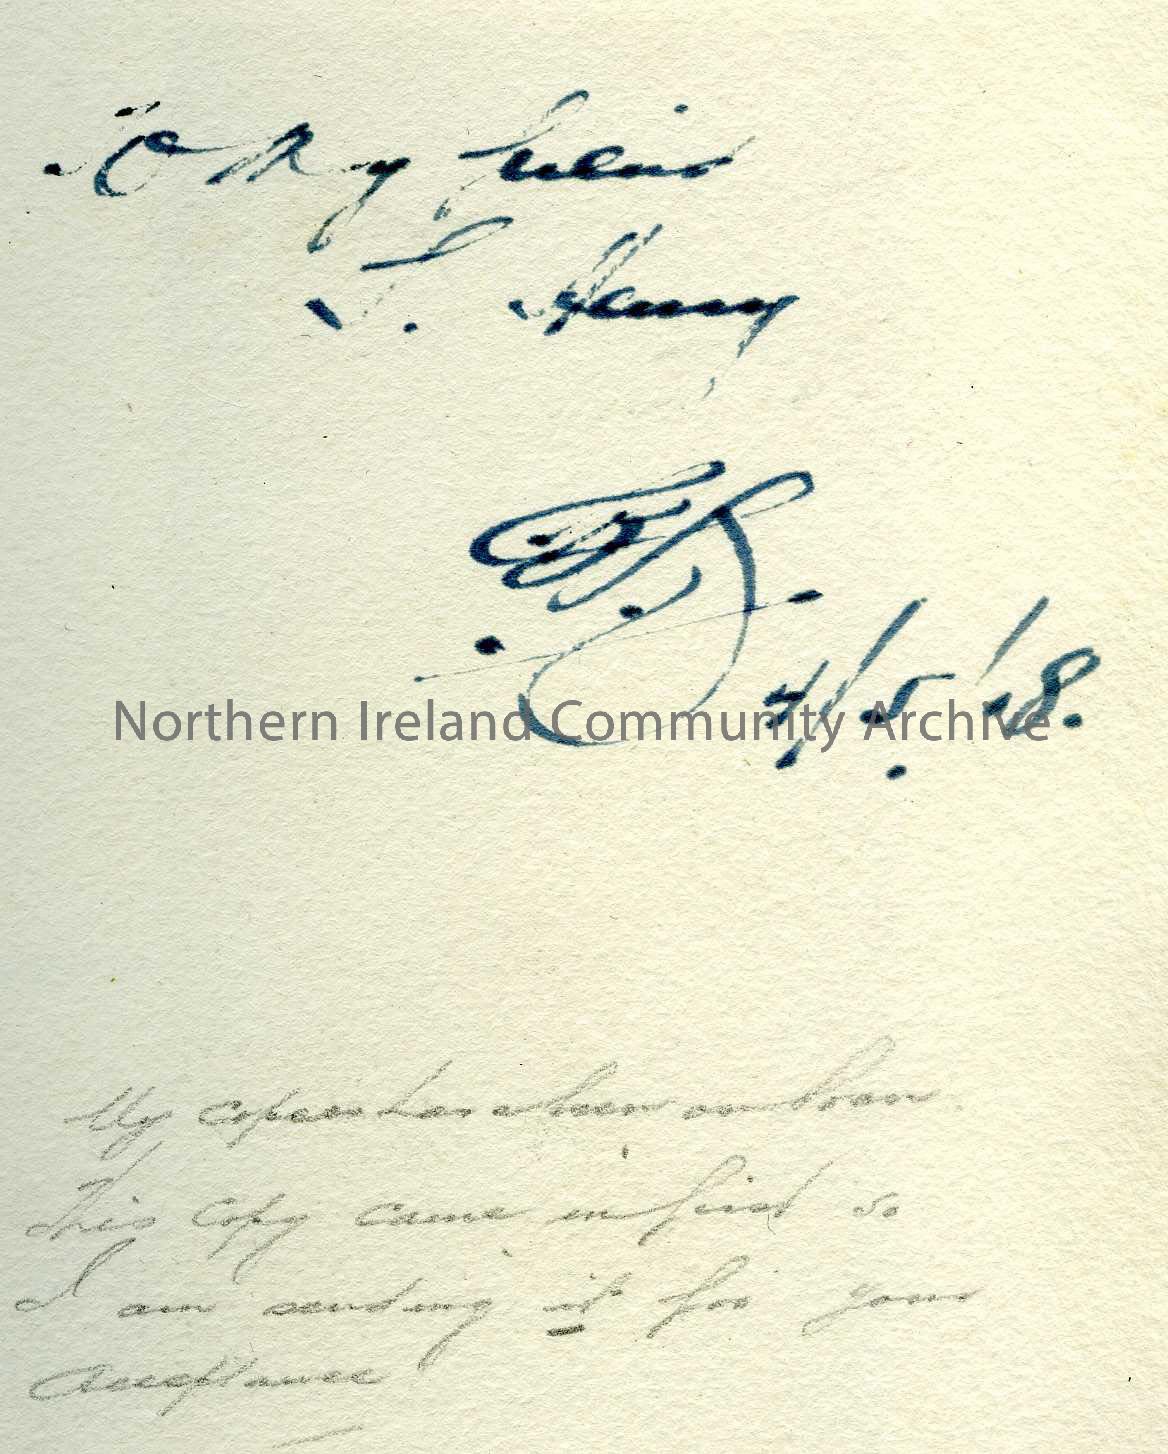 To My friend
S. Henry
4/5/18.
Northern Ireland Community Archive
My copies has been on loan.
This copy came in first so
I am sending it for your
acceptance